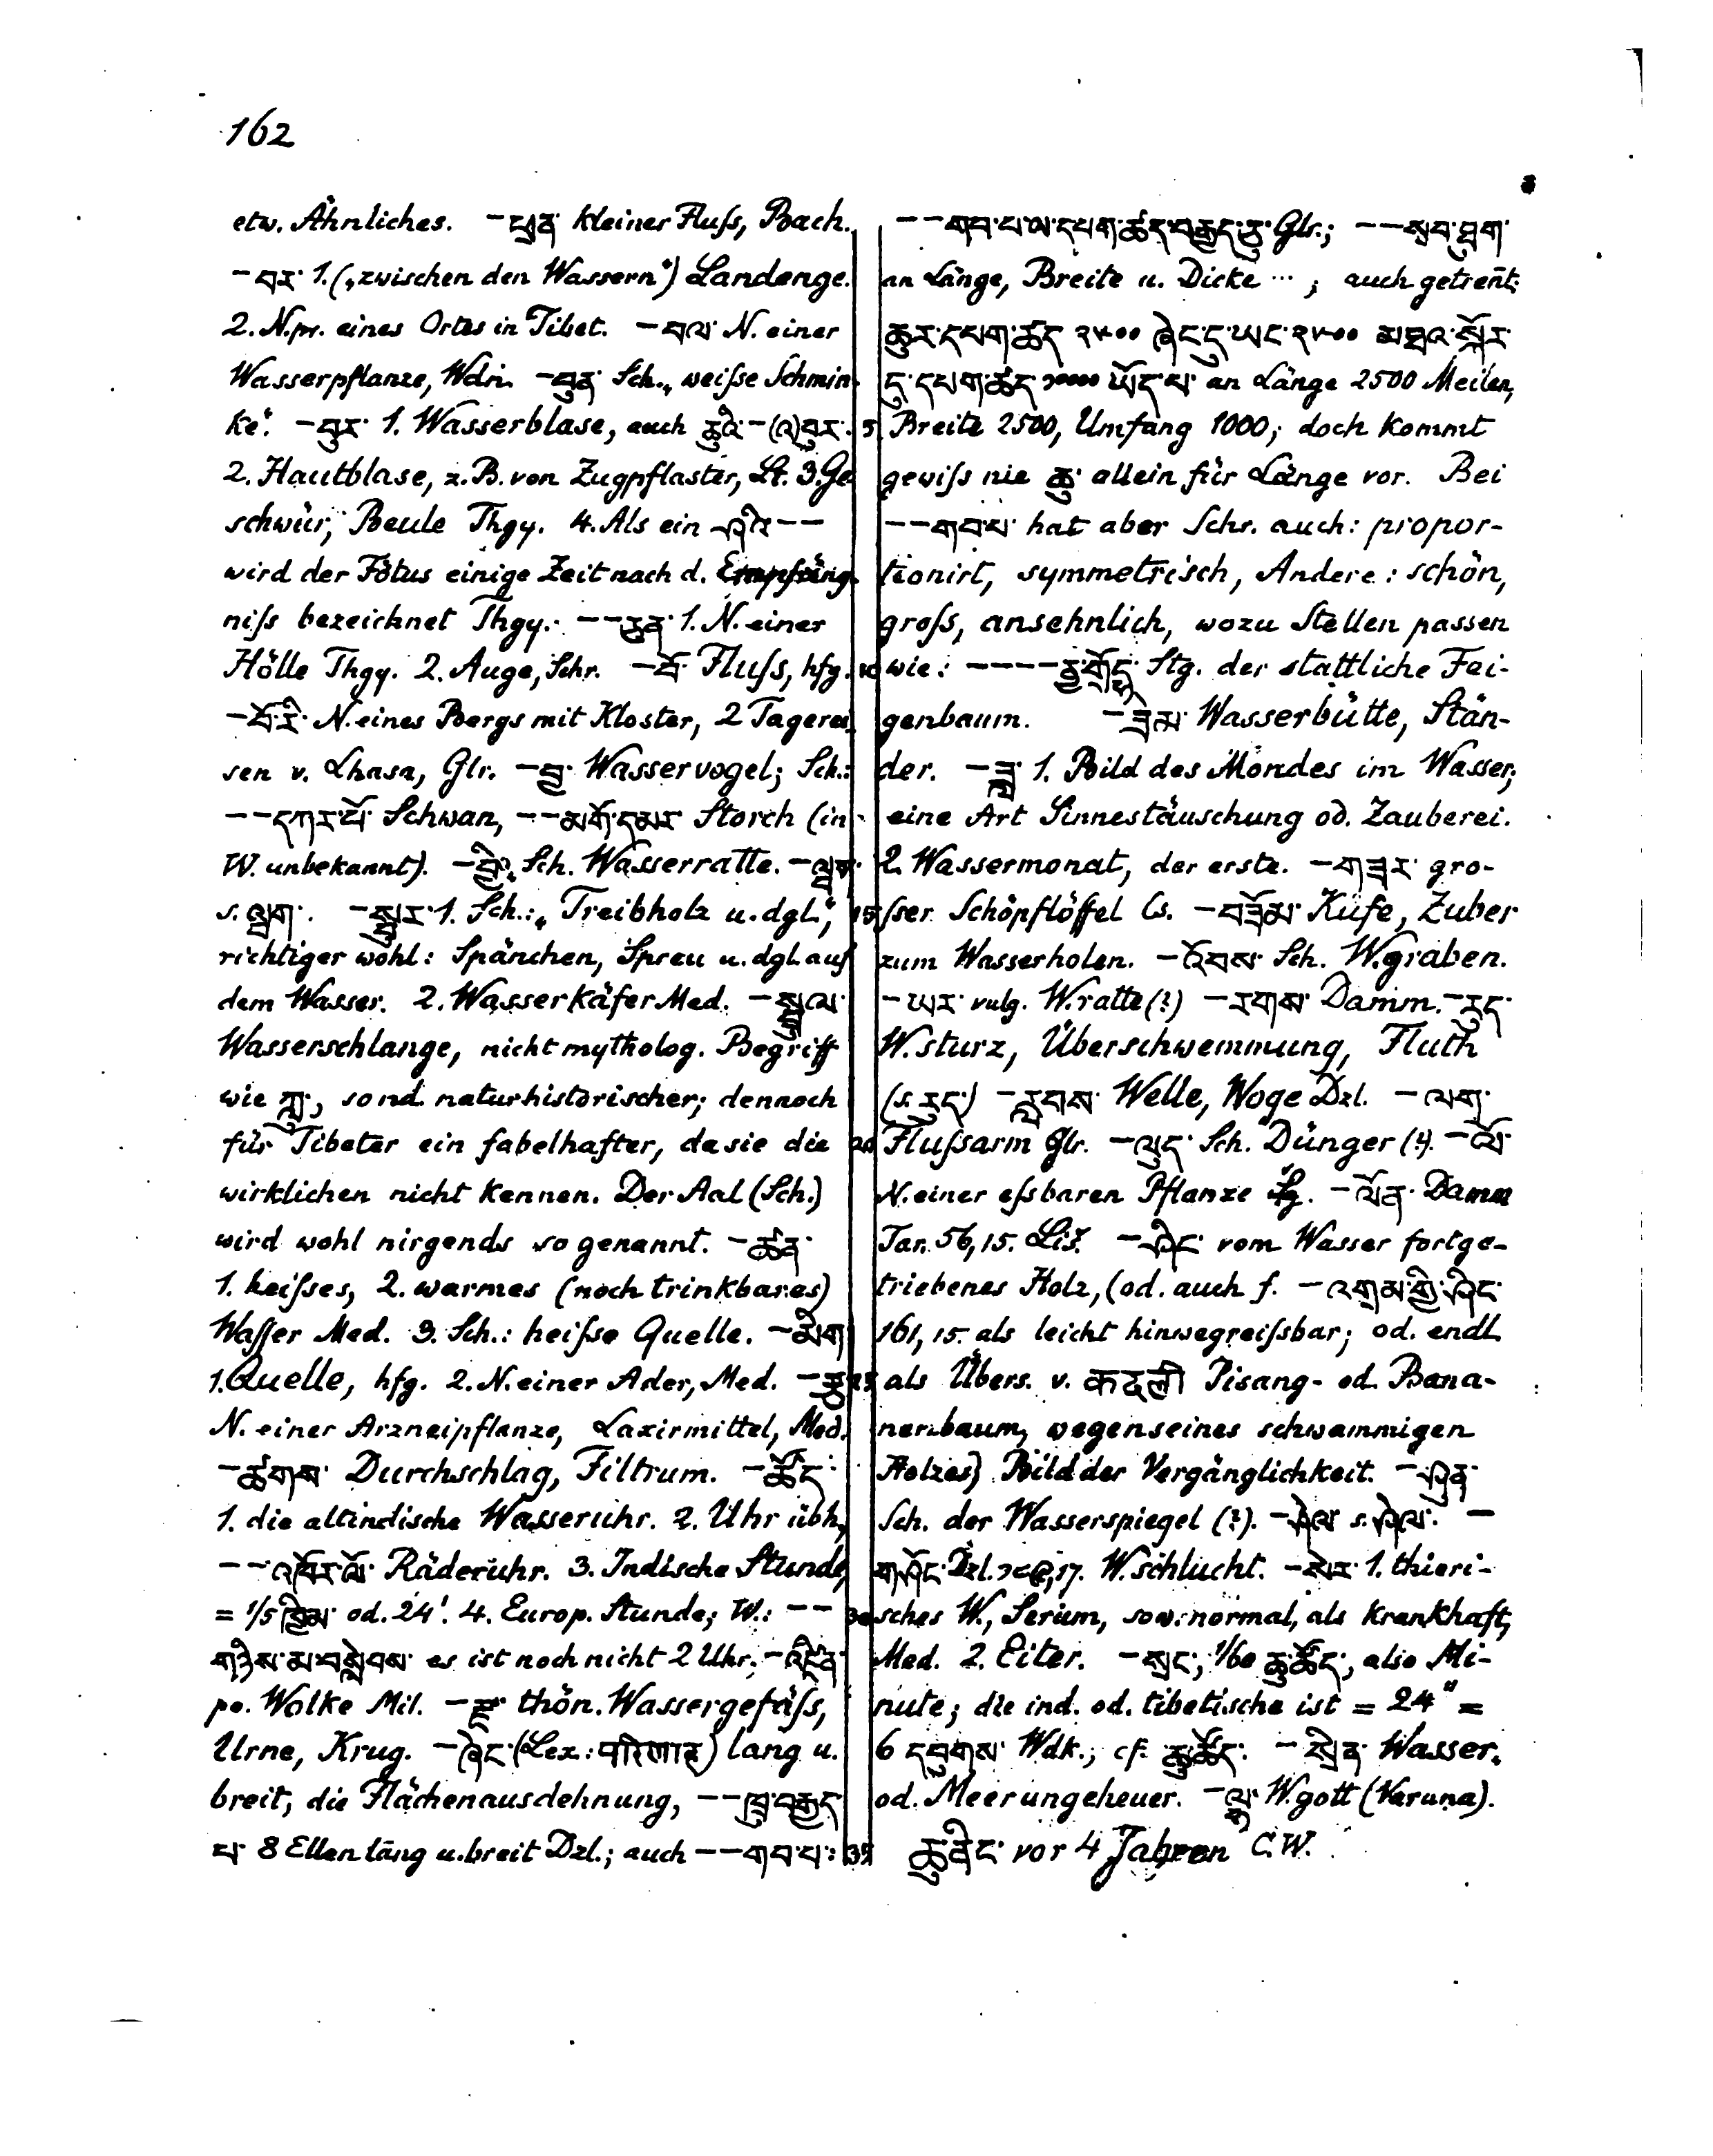 162
etw. Ähnliches. – ཕྲན་ kleiner Fluſs, Bach.
– བར་ 1. („zwischen den Wassern“) Landenge.
2. N.pr. eines Ortes in Tibet. – བལ་ N. einer
Wasserpflanze, Wdn. – བུན་ Sch. „weiſse Schmin-
ke“. – བུར་ 1. Wasserblase, auch ཆུའི་ – (འ)བུར་. 5
2. Hautblase, z.B. von Zugpflaster, Lt. 3. Ge
schwür, Beule Thgy. 4. Als ein ཤའི་ – –
wird der Fötus einige Zeit nach d. Empfäng-
niſs bezeichnet Thgy. – – ཅན་ 1. N. einer
Hölle Thgy. 2. Auge, Schr. – བོ་ Fluſs, hfg. 10
– བོ་རི་ N. eines Bergs mit Kloster, 2 Tagerei-
sen v. Lhasa, Glr. – བྱ་ Wasservogel; Sch.:
– – དཀར་པོ་ Schwan, – – མགོ་དམར་ Storch (in
W. unbekannt). – བྱི་ „Sch. Wasserratte. –
s. ལྦག་. – 1. Sch.: „Treibholz u. dgl.“, 15
richtiger wohl: Spänchen, Spreu u. dgl. auf
dem Wasser. 2. Wasserkäfer Med. – སྦྲུལ་
Wasserschlange, nicht mytholog. Begriff
wie ཀླུ་, sond. naturhistorischer; dennoch
für Tibeter ein fabelhafter, da sie die 20
wirklichen nicht kennen. Der Aal (Sch.)
wird wohl nirgends so genannt. – ཚན་
1. heiſses, 2. warmes (noch trinkbares)
Waſser Med. 3. Sch.: heiſse Quelle. – མིག་
1. Quelle, hfg. 2. N. einer Ader, Med. – རྩ་ 25
N. einer Arzneipflanze, Laxirmittel, Med.
– ཚགས་ Durchschlag, Filtrum. – ཚོད་
1. die altindische Wasseruhr. 2. Uhr übh.,
– – འཁོར་ལོ་ Räderuhr. 3. Indische Stunde,
= 1/5 ཁྱིམ་ od. 24'. 4. Europ. Stunde; W.: – – 30
གཉིས་མ་བསླེབས་ es ist noch nicht 2 Uhr. – འཛིན་
po. Wolke Mil. – རྫ་ thön. Wassergefäſs,
Urne, Krug. – ཞེང་ (Lex.: परिणाह) lang u.
breit, die Flächenausdehnung, – – ཁྲུ་བརྒྱད་
པ་ 8 Ellen lang u. breit Dzl.; auch – – གབ་པ་: 35
– – གབ་པ་ལ་དཔག་ཚད་བརྒྱད་ཅུ་ Glr.; – – སྲབ་ཐུག་
an Länge, Breite u. Dicke ...; auch getrent:
ཆུར་དཔག་ཚད་ ༢༥༠༠ ཞེང་དུ་ཡང་ ༢༥༠༠ མཐའ་སྐོར་
དུ་དཔག་ཚད་ ༡༠༠༠༠ ཡོད་པ་ an Länge 2500 Meilen,
Breite 2500, Umfang 1000; doch kommt
gewiſs nie ཆུ་ allein für Länge vor. Bei
– – གབ་པ་ hat aber Schr. auch: propor-
tionirt, symmetrisch, Andere: schön,
groſs, ansehnlich, wozu Stellen passen
wie: – – – – Stg. der stattliche Fei-
genbaum. – ཟེམ་ Wasserbütte, Stän-
der. – ཟླ་ 1. Bild des Mondes im Wasser,
eine Art Sinnestäuschung od. Zauberei.
2. Wassermonat, der erste. – གཟར་ gro-
sser Schöpflöffel Cs. – བཟོམ་ Kufe, Zuber
zum Wasserholen. – འོབས་ Sch. W.graben.
– ཡར་ vulg. W.ratte (?) – རགས་ Damm. – རུད་
W.sturz, Überschwemmung, Fluth
(s. རུད་) – རླབས་ Welle, Woge Dzl. – ལག་
Fluſsarm Glr. – ལུད་ Sch. Dünger (?). – ལོ་
N. einer eſsbaren Pflanze. – ལོན་ Damm
Tar. 56, 15. Liš. – ཤིང་ vom Wasser fortge-
triebenes Holz, (od. auch f. – འགྲམ་གྱི་ཤིང་
161, 15. als leicht hinwegreiſsbar; od. endl.
als Übers. v. कदली Pisang- od. Bana-
nenbaum, wegen seines schwammigen
Holzes) Bild der Vergänglichkeit. – ཤུན་
Sch. der Wasserspiegel (?). – ཤེལ་ s. ཤེལ་. –
གཤོང་ Dzl., 17. W.schlucht. – སེར་ 1. thieri-
sches W., Serum, sow. normal, als krankhaft,
Med. 2. Eiter. – སྲང་, 1/60 ཆུ་ཚོད་, also Mi-
nute; die ind. od. tibetische ist = 24" =
6 དབུགས་ Wdk.; cf. ཆུ་ཚོད་. – སྲིན་ Wasser-
od. Meerungeheuer. – ལྷ་ W.gott (Varuna).
ཆུ་ནིང་ vor 4 Jahren C.W.